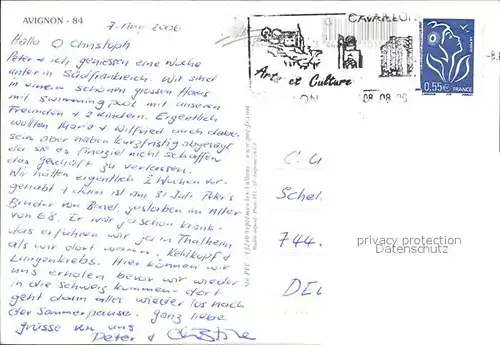 AVIGNON - 84
7. Aug 2006
Hallo Christoph
Peter & ich geniessen eine Woche
unten in Südfrankreich. Wir sind
in einem schönen grossen Haus
mit swimmingpool mit unseren
Freunden & 2 Kindern. Eigentlich
wollten Maria & Wilfried auch dabei
sein aber haben kurzfristig abgesagt
da sie es finaziel nicht schaffen
das geschäft zu verlassen.
Wir hätten eigentlich 2 Wochen vor-
gehabt & dann ist am 31. Juli Peter's
Bruder von Basel gestorben im Alter
von 68. Er war ja schon krank -
das erfuhren wir ja in Thalheim
als wir dort waren. Kehlkopf &
Lungenkrebs. Hier können wir
uns erholen bevor wir wieder
in die Schweiz kommen - dort
geht dann alles wieder los nach
der Sommerpause. ganz liebe
grüsse von uns
Peter &
CAVAILLON
Art et Culture
08.08.06
0,55€ FRANCE
C.
Schel
744
DE
privacy protection
Datenschutz